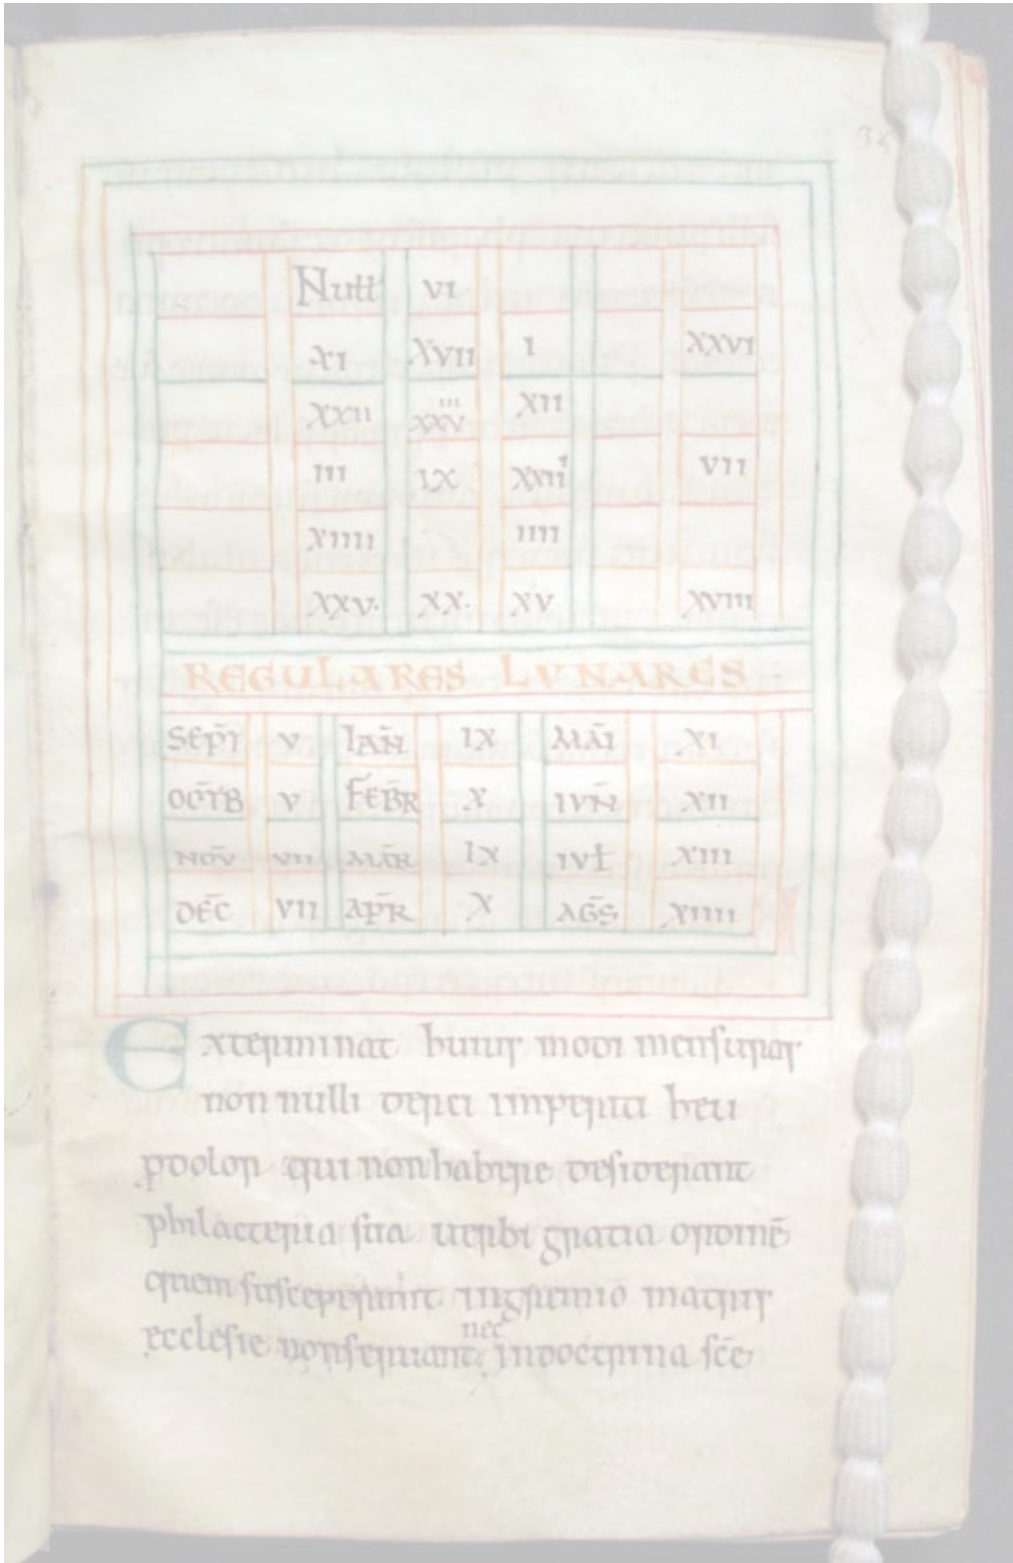 Nuɫɫ VI
XI XVII I XXVI
XXII XXV III XII
III IX XXIII VII
XIIII IIII
XXV· XX· XV XVIII
REGULARES LVNARES
SEPT̄ V IAN̄ IX MAĪ XI
OCT̄B V FEB̄R X IVN̄ XII
NOV̄ VII MAR̄ IX IVɫ XIII
DEC̄ VII APR̄ X AḠS XIIII
Exterminat huius modi mensuras
non nulli clerici imperiti heu
pdolor qui non habere desiderant
philacteria sua uerbi gratia ordinē
quem susceperunt ingremio matris
nec
ecclesie non seruant. indoctrina sc̄e